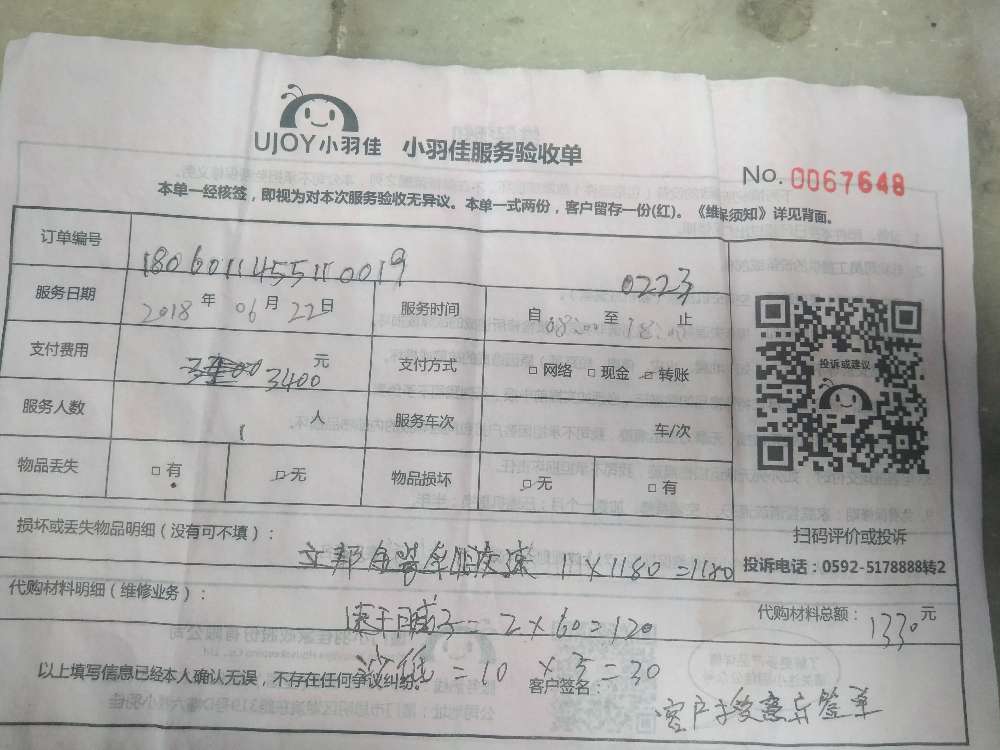 UJOY小羽佳 小羽佳服务验收单
No. 0067648
本单一经核签，即视为对本次服务验收无异议。本单一式两份，客户留存一份(红)。《维保须知》详见背面。
订单编号 1806011455110019 0223
服务日期 2018 年 06 月 22 日 服务时间 自 08:00 至 18: 止
支付费用 3400 元 支付方式 □ 网络 □ 现金 □ 转账
服务人数 1 人 服务车次 车/次
物品丢失 □ 有 □ 无 物品损坏 □ 无 □ 有
投诉或建议
扫码评价或投诉
投诉电话：0592-5178888转2
损坏或丢失物品明细（没有可不填）：
1 × 1180 = 1180
代购材料明细（维修业务）：
速干 = 2 × 60 = 120
代购材料总额： 1330 元
砂纸 = 10 × 3 = 30
以上填写信息已经本人确认无误，不存在任何争议纠纷。 客户签名：
客户 签单